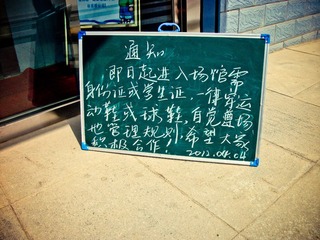 通知
即日起进入场馆需
身份证或学生证，一律穿运
动鞋或球鞋，自觉遵场
地管理规划，希望大家
积极合作！
2012.04.04